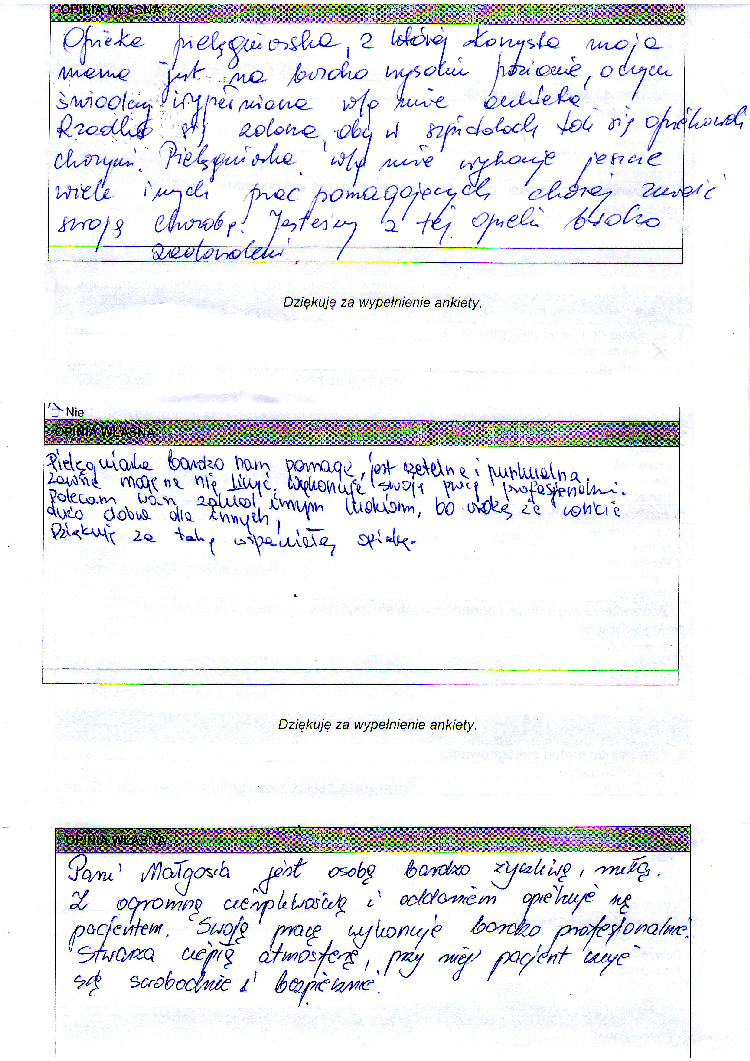 OPINIA WŁASNA
Opieka pielęgniarska, z której korzysta moja
mama jest na bardzo wysokim poziomie, o czym
świadczy wypełniona w/g mnie ankieta.
Rzadko się zdarza, aby w szpitalach tak się opiekowali
chorymi. Pielęgniarka w/g mnie wykonuje jeszcze
wiele innych prac pomagających chorej znosić
swoją chorobę! Jesteśmy z tej opieki bardzo
zadowoleni
Dziękuję za wypełnienie ankiety.
Nie
OPINIA WŁASNA
Pielęgniarka bardzo nam pomaga, jest rzetelna i punktualna
zawsze mogę na nią liczyć. Wykonuje swoją pracę profesjonalnie.
Polecam wam zakład innym ludziom, bo widzę że robicie
dużo dobra dla innych,
Dziękuję za taką wspaniałą opiekę.
Dziękuję za wypełnienie ankiety.
OPINIA WŁASNA
Pani Małgosia jest osobą bardzo życzliwą, miłą.
Z ogromną cierpliwością i oddaniem opiekuje się
pacjentem. Swoją pracę wykonuje bardzo profesjonalnie.
Stwarza ciepłą atmosferę, przy niej pacjent czuje
się swobodnie i bezpiecznie.